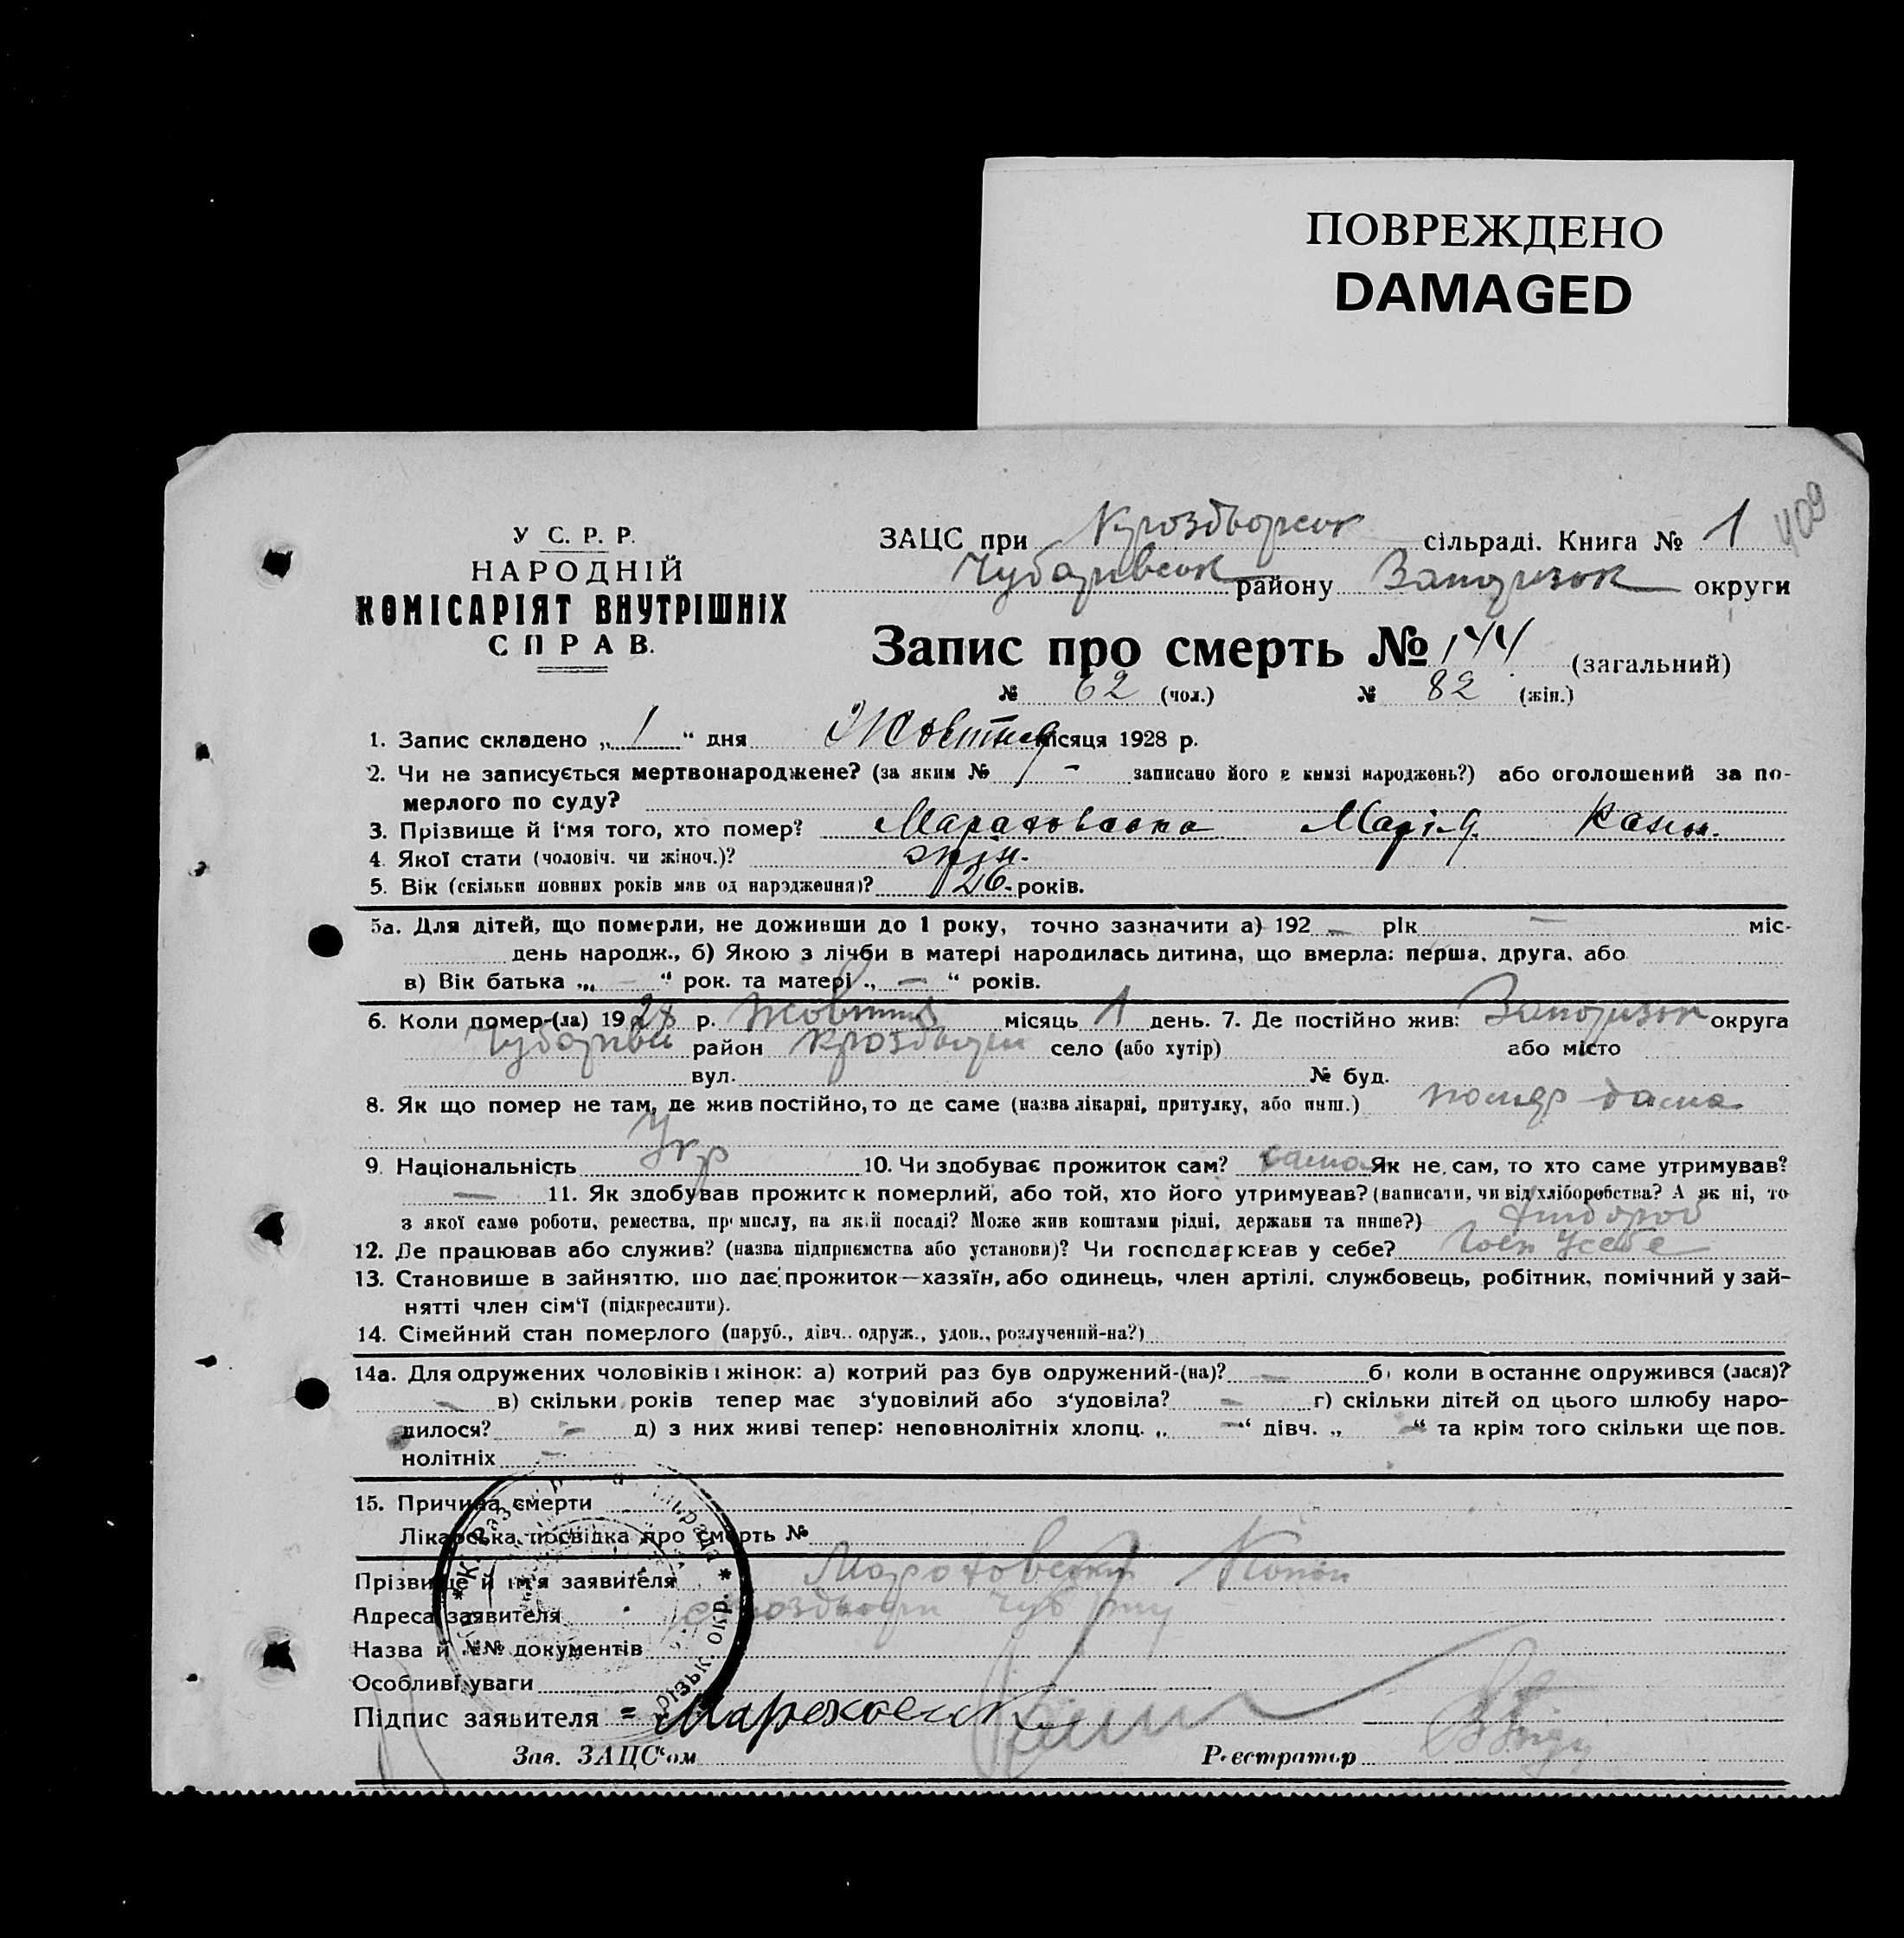 ПОВРЕЖДЕНО
DAMAGED
409
У С. Р. Р.
НАРОДНІЙ
КОМІСАРІЯТ ВНУТРІШНІХ
СПРАВ.
ЗАЦС при сільраді. Книга № 1
Чубарівськ району Запоризьк округи
Запис про смерть № 144 (загальний)
№ 62 (чол.) № 82 (жін.)
1. Запис складено „ 1 “ дня Жовтня місяця 1928 р.
2. Чи не записується мертвонароджене? (за яким № - записано його в книзі народжень?) або оголошений за по-
мерлого по суду?
3. Прізвище й ім'я того, хто помер? Мараховська Марія
4. Якої стати (чоловіч. чи жіноч.)? жін.
5. Вік (скільки повних років мав од народження)? 26 років.
5а. Для дітей, що померли, не доживши до 1 року, точно зазначити а) 192 — рік — міс-
день народж., б) Якою з лічби в матері народилась дитина, що вмерла: перша, друга, або
в) Вік батька „ — “ рок. та матері „ — “ років.
6. Коли помер-(ла) 1928 р. Жовтня місяць 1 день. 7. Де постійно жив: Запоризьк округа
район село (або хутір) або місто
вул. № буд.
8. Як що помер не там, де жив постійно, то де саме (назва лікарні, притулку, або инш.) дома
9. Національність Укр 10. Чи здобуває прожиток сам? сама Як не сам, то хто саме утримував?
— 11. Як здобував прожиток померлий, або той, хто його утримував? (написати, чи від хліборобства? А як ні, то
з якої саме роботи, ремества, промислу, на якій посаді? Може жив коштами рідні, держави та инше?)
12. Де працював або служив? (назва підприємства або установи)? Чи господарював у себе? у себе
13. Становище в зайняттю, що дає прожиток—хазяїн, або одинець, член артілі, службовець, робітник, помічний у зай-
нятті член сім'ї (підкреслити).
14. Сімейний стан померлого (паруб., дівч., одруж., удов., розлучений-на?)
14а. Для одружених чоловіків і жінок: а) котрий раз був одружений-(на)? — б) коли в останнє одружився (лася)?
— в) скільки років тепер має з'уповілий або з'удовіла? — г) скільки дітей од цього шлюбу наро-
дилося? — д) з них живі тепер: неповнолітніх хлопц. „ — “ дівч. „ — “ та крім того скільки ще пов.
нолітніх —
15. Причина смерти
Лікарська посвідка про смерть №
Прізвище й ім'я заявителя Мараховський Конон
Адреса заявителя
Назва й №№ документів
Особливі уваги
Підпис заявителя = Мараховськ
Зав. ЗАЦС'ом Реєстратор